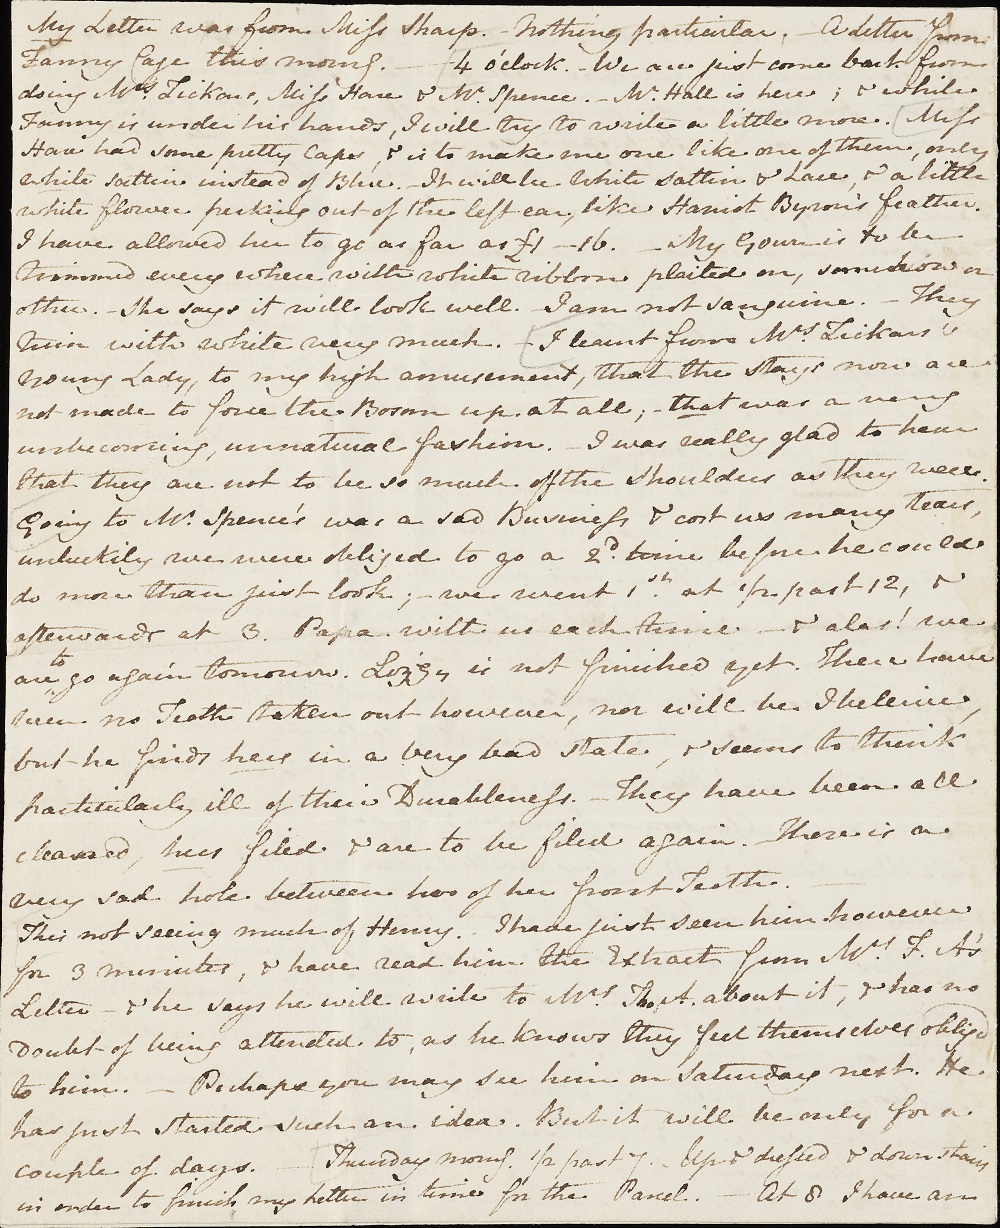 My Letter was from Miss Sharp. - Nothing particular. - A letter from
Fanny Cage this morng. - 4 o'clock. - We are just come back from
doing Mrs Tickars, Miss Hare & Mr. Spence. - Mr. Hall is here; & while
Fanny is under his hands, I will try to write a little more. Miss
Hare had some pretty Caps, & is to make me one like one of them, only
white sattin instead of Blue. - It will be white sattin & Lace, & a little
white flower perking out of the left ear, like Harriot Byron's feather.
I have allowed her to go as far as £1 - 16. - My Gown is to be
trimmed every where with white ribbon plaited on, somehow or
other. - She says it will look well. - I am not sanguine. - They
trim with white very much. - I learnt from Mrs Tickars's
young Lady, to my high amusement, that the stays now are
not made to force the Bosom up at all; - that was a very
unbecoming, unnatural fashion. - I was really glad to hear
that they are not to be so much off the shoulders as they were.
Going to Mr. Spence's was a sad Business & cost us many tears,
unluckily we were obliged to go a 2d time before he could
do more than just look; - we went 1st at 1/2 past 12, &
afterwards at 3. Papa with us each time - & alas! we
are to go again tomorrow. Lizzy is not finished yet. There have
been no Teeth taken out however, nor will be I beleive,
but he finds hers in a very bad state, & seems to think
particularly ill of their Durableness. - They have been all
cleaned, hers filed & are to be filed again. There is a
very sad hole between two of her front Teeth.
This not seeing much of Henry. I have just seen him however
for 3 minutes, & have read him the Extract from Mrs F. A's
Letter - & he says he will write to Mrs Tho. A. about it, & has no
doubt of being attended to, as he knows they feel themselves obliged
to him. - Perhaps you may see him on Saturday next. He
has just started such an idea. But it will be only for a
couple of days. - Thursday morng. 1/2 past 7. - Up & dressed & down stairs
in order to finish my letter in time for the Parcel. - At 8 I have an